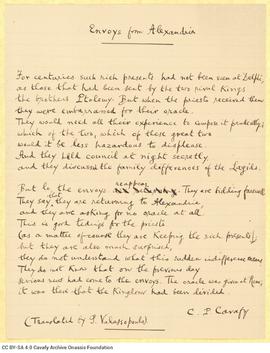 Envoys from Alexandria
For centuries such rich presents had not been seen at Delphi,
as those that had been sent by the two rival Kings
the brothers Ptolemy. But when the priests received them
they were embarrassed for their oracle.
They would need all their experience to compose it prudently;
which of the two, which of these great two
would it be less hazardous to displease.
And they held council at night secretly
and they discussed the family differences of the Lagids.
But lo the envoys reappear. They are bidding farewell
They say, that they are returning to Alexandria,
and they are asking for no oracle at all.
This is good tidings for the priests
(as a matter-of-course they are keeping the rich presents);
but they are also much surprised,
they do not understand what this sudden indifference means.
They do not know that on the previous day
serious news had come to the envoys. The oracle was given at Rome,
it was there that the Kingdom had been divided.
C. P. Cavafy
(Translated by G. Valassopoulo)
CC BY-SA 4.0 Cavafy Archive Onassis Foundation